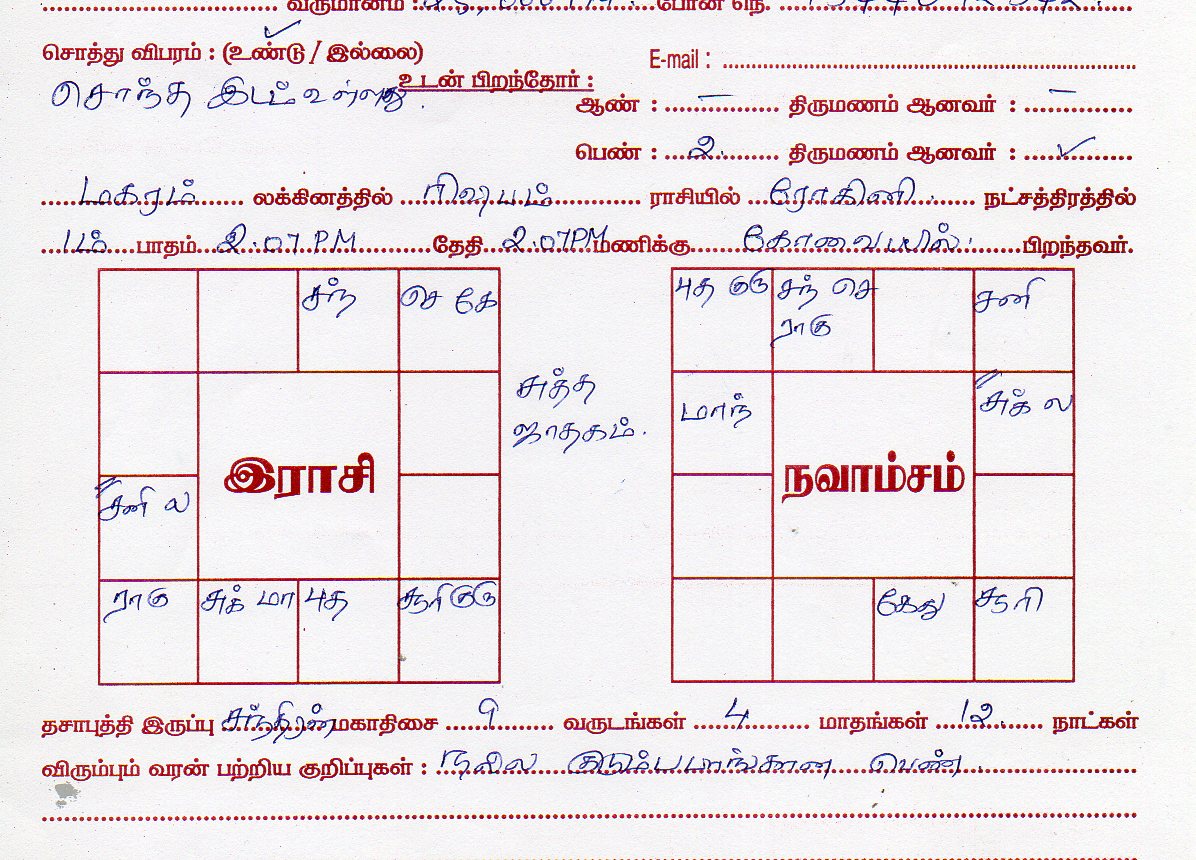 வருமானம் : போன் நெ.
சொத்து விபரம் : (உண்டு / இல்லை) E-mail :
சொந்த இடம் உள்ளது. உடன் பிறந்தோர் :
ஆண் : – திருமணம் ஆனவர் : –
பெண் : 2 திருமணம் ஆனவர் : ✓
மகரம் லக்கினத்தில் ரிஷபம் ராசியில் ரோகினி நட்சத்திரத்தில்
1ம் பாதம் 2.07.PM தேதி 2.07PM மணிக்கு கோவையில். பிறந்தவர்.
சந் செ கே
சனி ல
ராகு சுக் மா புத சூரி குரு
இராசி
சுத்த
ஜாதகம்.
புத குரு சந் செ சனி
ராகு
மாந் சுக் ல
நவாம்சம்
கேது சூரி
தசாபுத்தி இருப்பு சந்திரன் மகாதிசை 9 வருடங்கள் 4 மாதங்கள் 12 நாட்கள்
விரும்பும் வரன் பற்றிய குறிப்புகள் : நல்ல குடும்பபாங்கான பெண்.